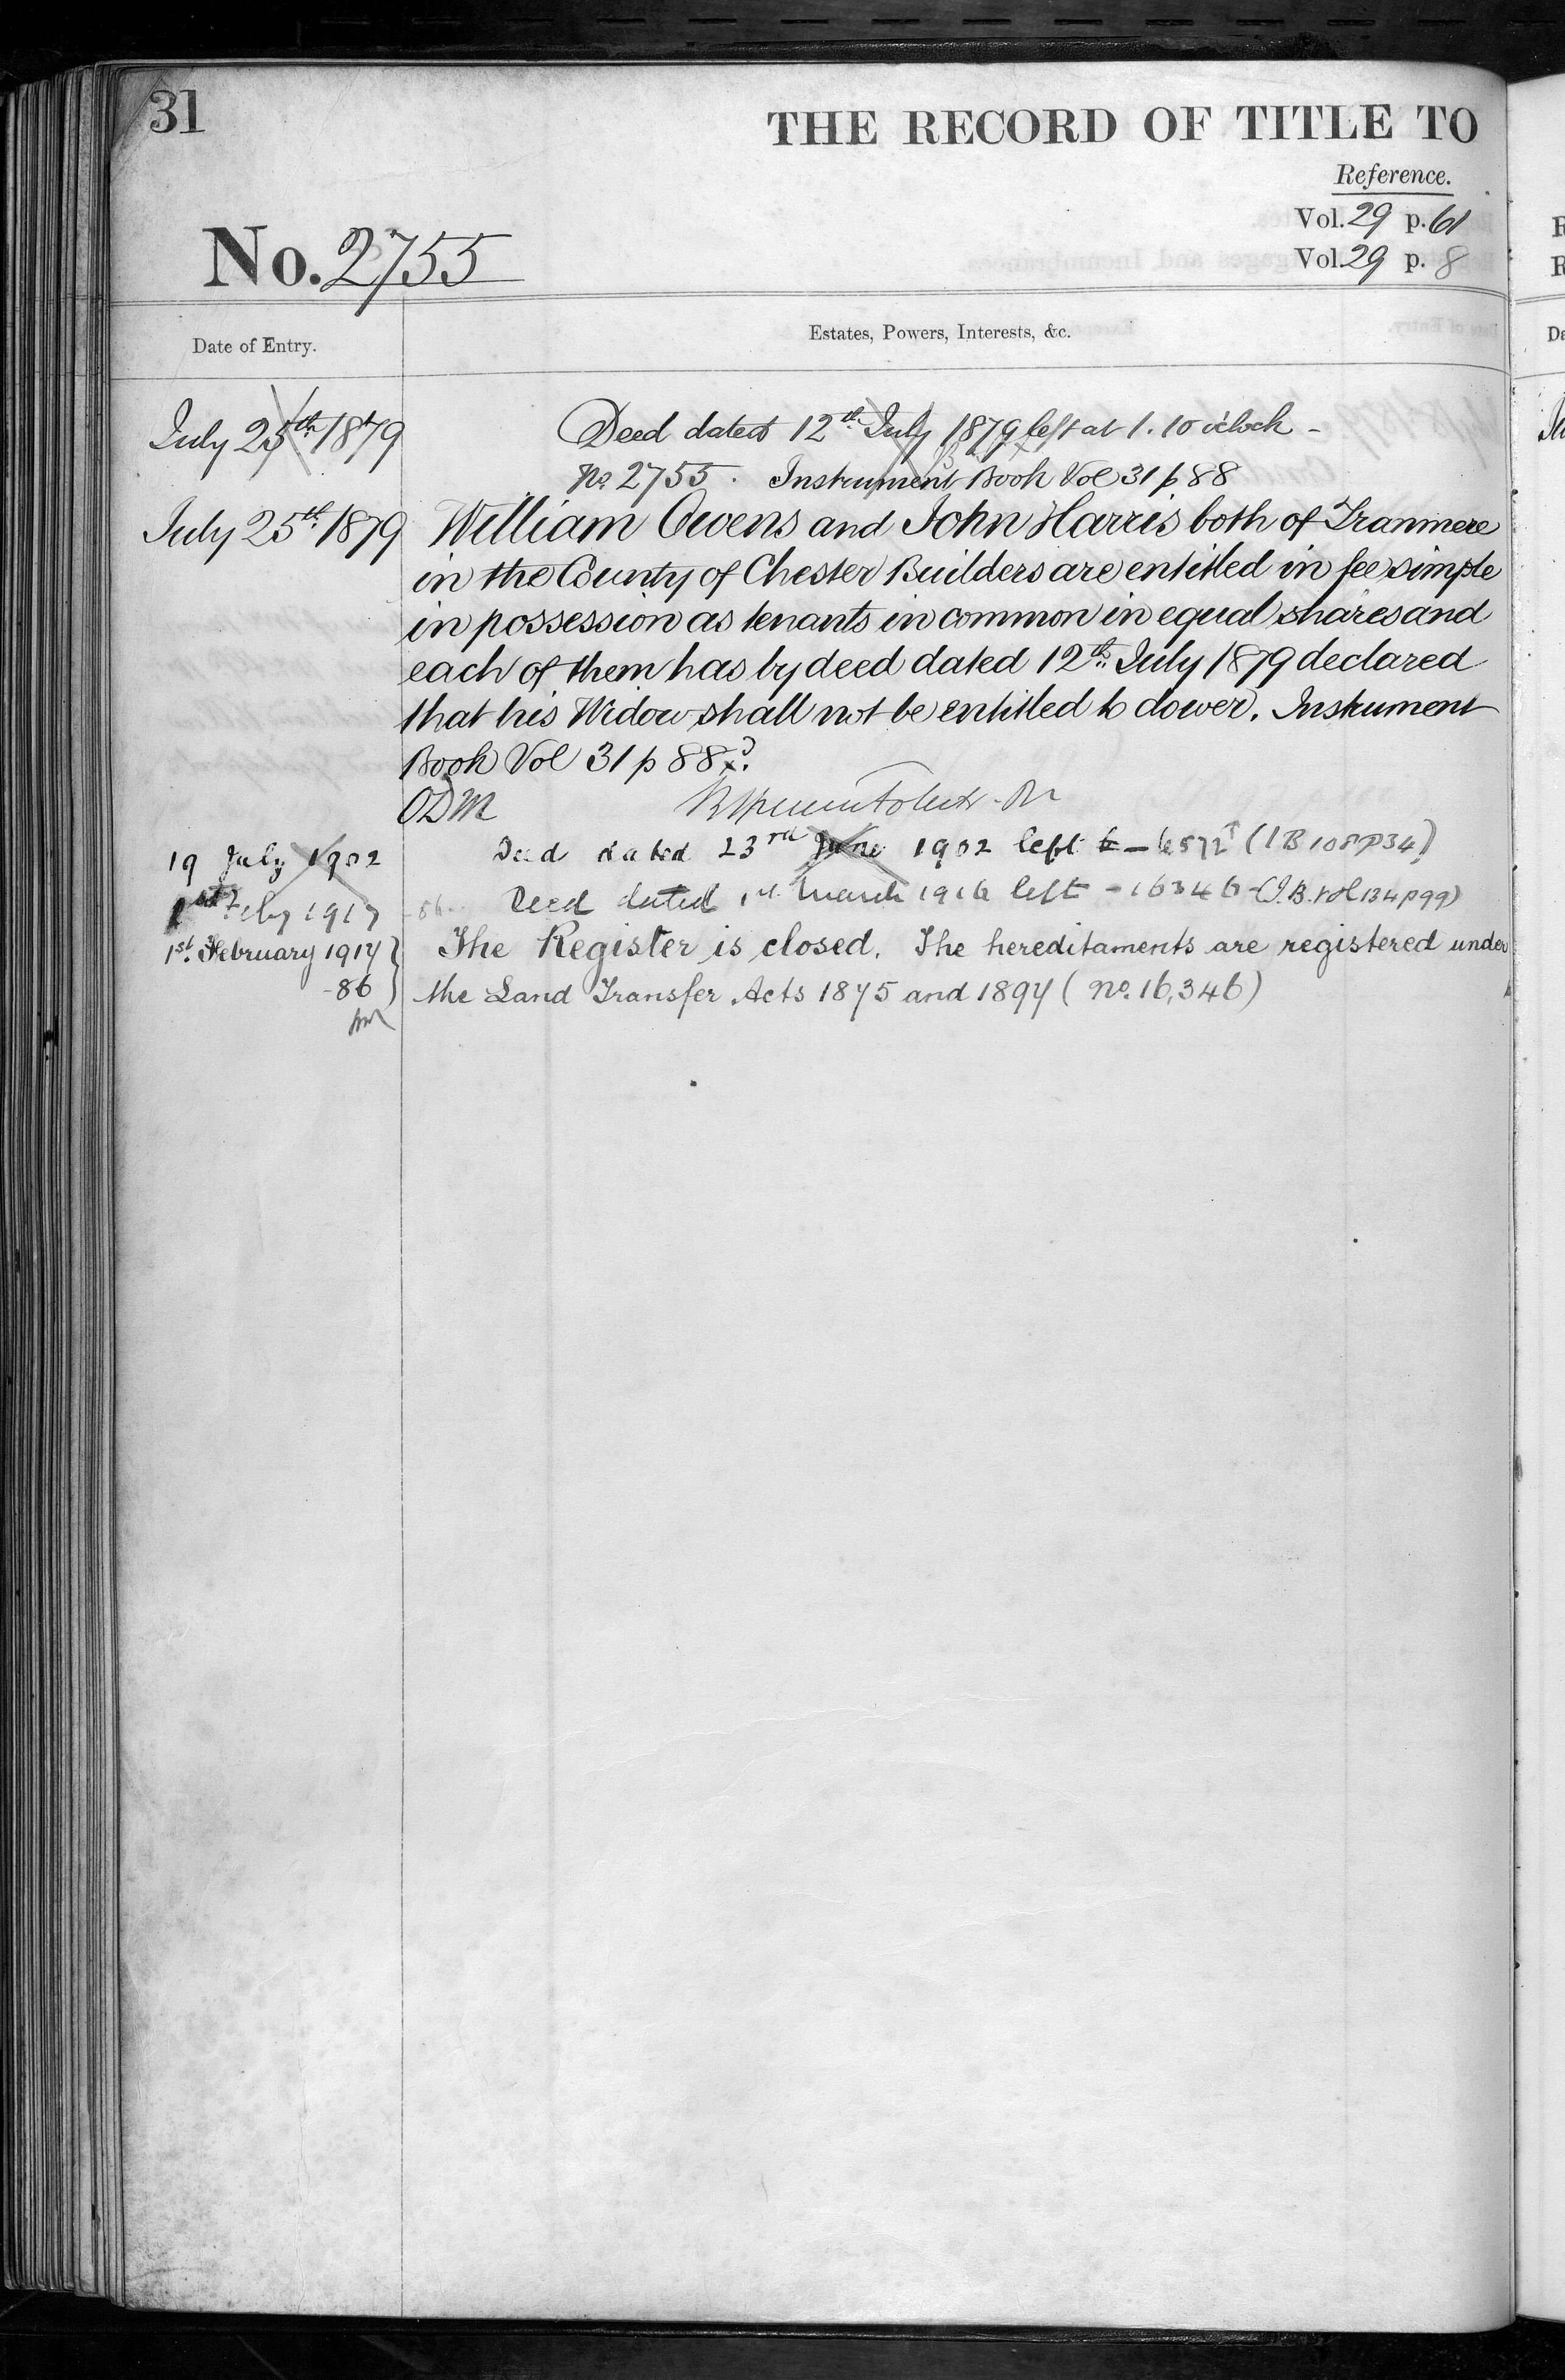 31
THE RECORD OF TITLE TO
Reference.
Vol. 29 p. 61
Vol. 29 p. 8
No. 2755
Date of Entry.
Estates, Powers, Interests, &c.
July 25th 1879 Deed dated 12th July 1879 left at 1.10 o'clock -
No 2755. Instrument Book Vol 31 p 88
July 25th 1879 William Owens and John Harris both of Tranmere
in the County of Chester Builders are entitled in fee simple
in possession as tenants in common in equal shares and
each of them has by deed dated 12th July 1879 declared
that his Widow shall not be entitled to dower. Instrument
Book Vol 31 p 88
ODM
19 July 1902 Deed dated 23rd June 1902 left - 6572 (IB 108 P34)
1st Feby 1917 -86- Deed dated 1st March 1916 left - 16346 - (I.B. Vol 134 p 99)
1st February 1917 The Register is closed. The hereditaments are registered under
-86 the Land Transfer Acts 1875 and 1897 (No. 16,346)